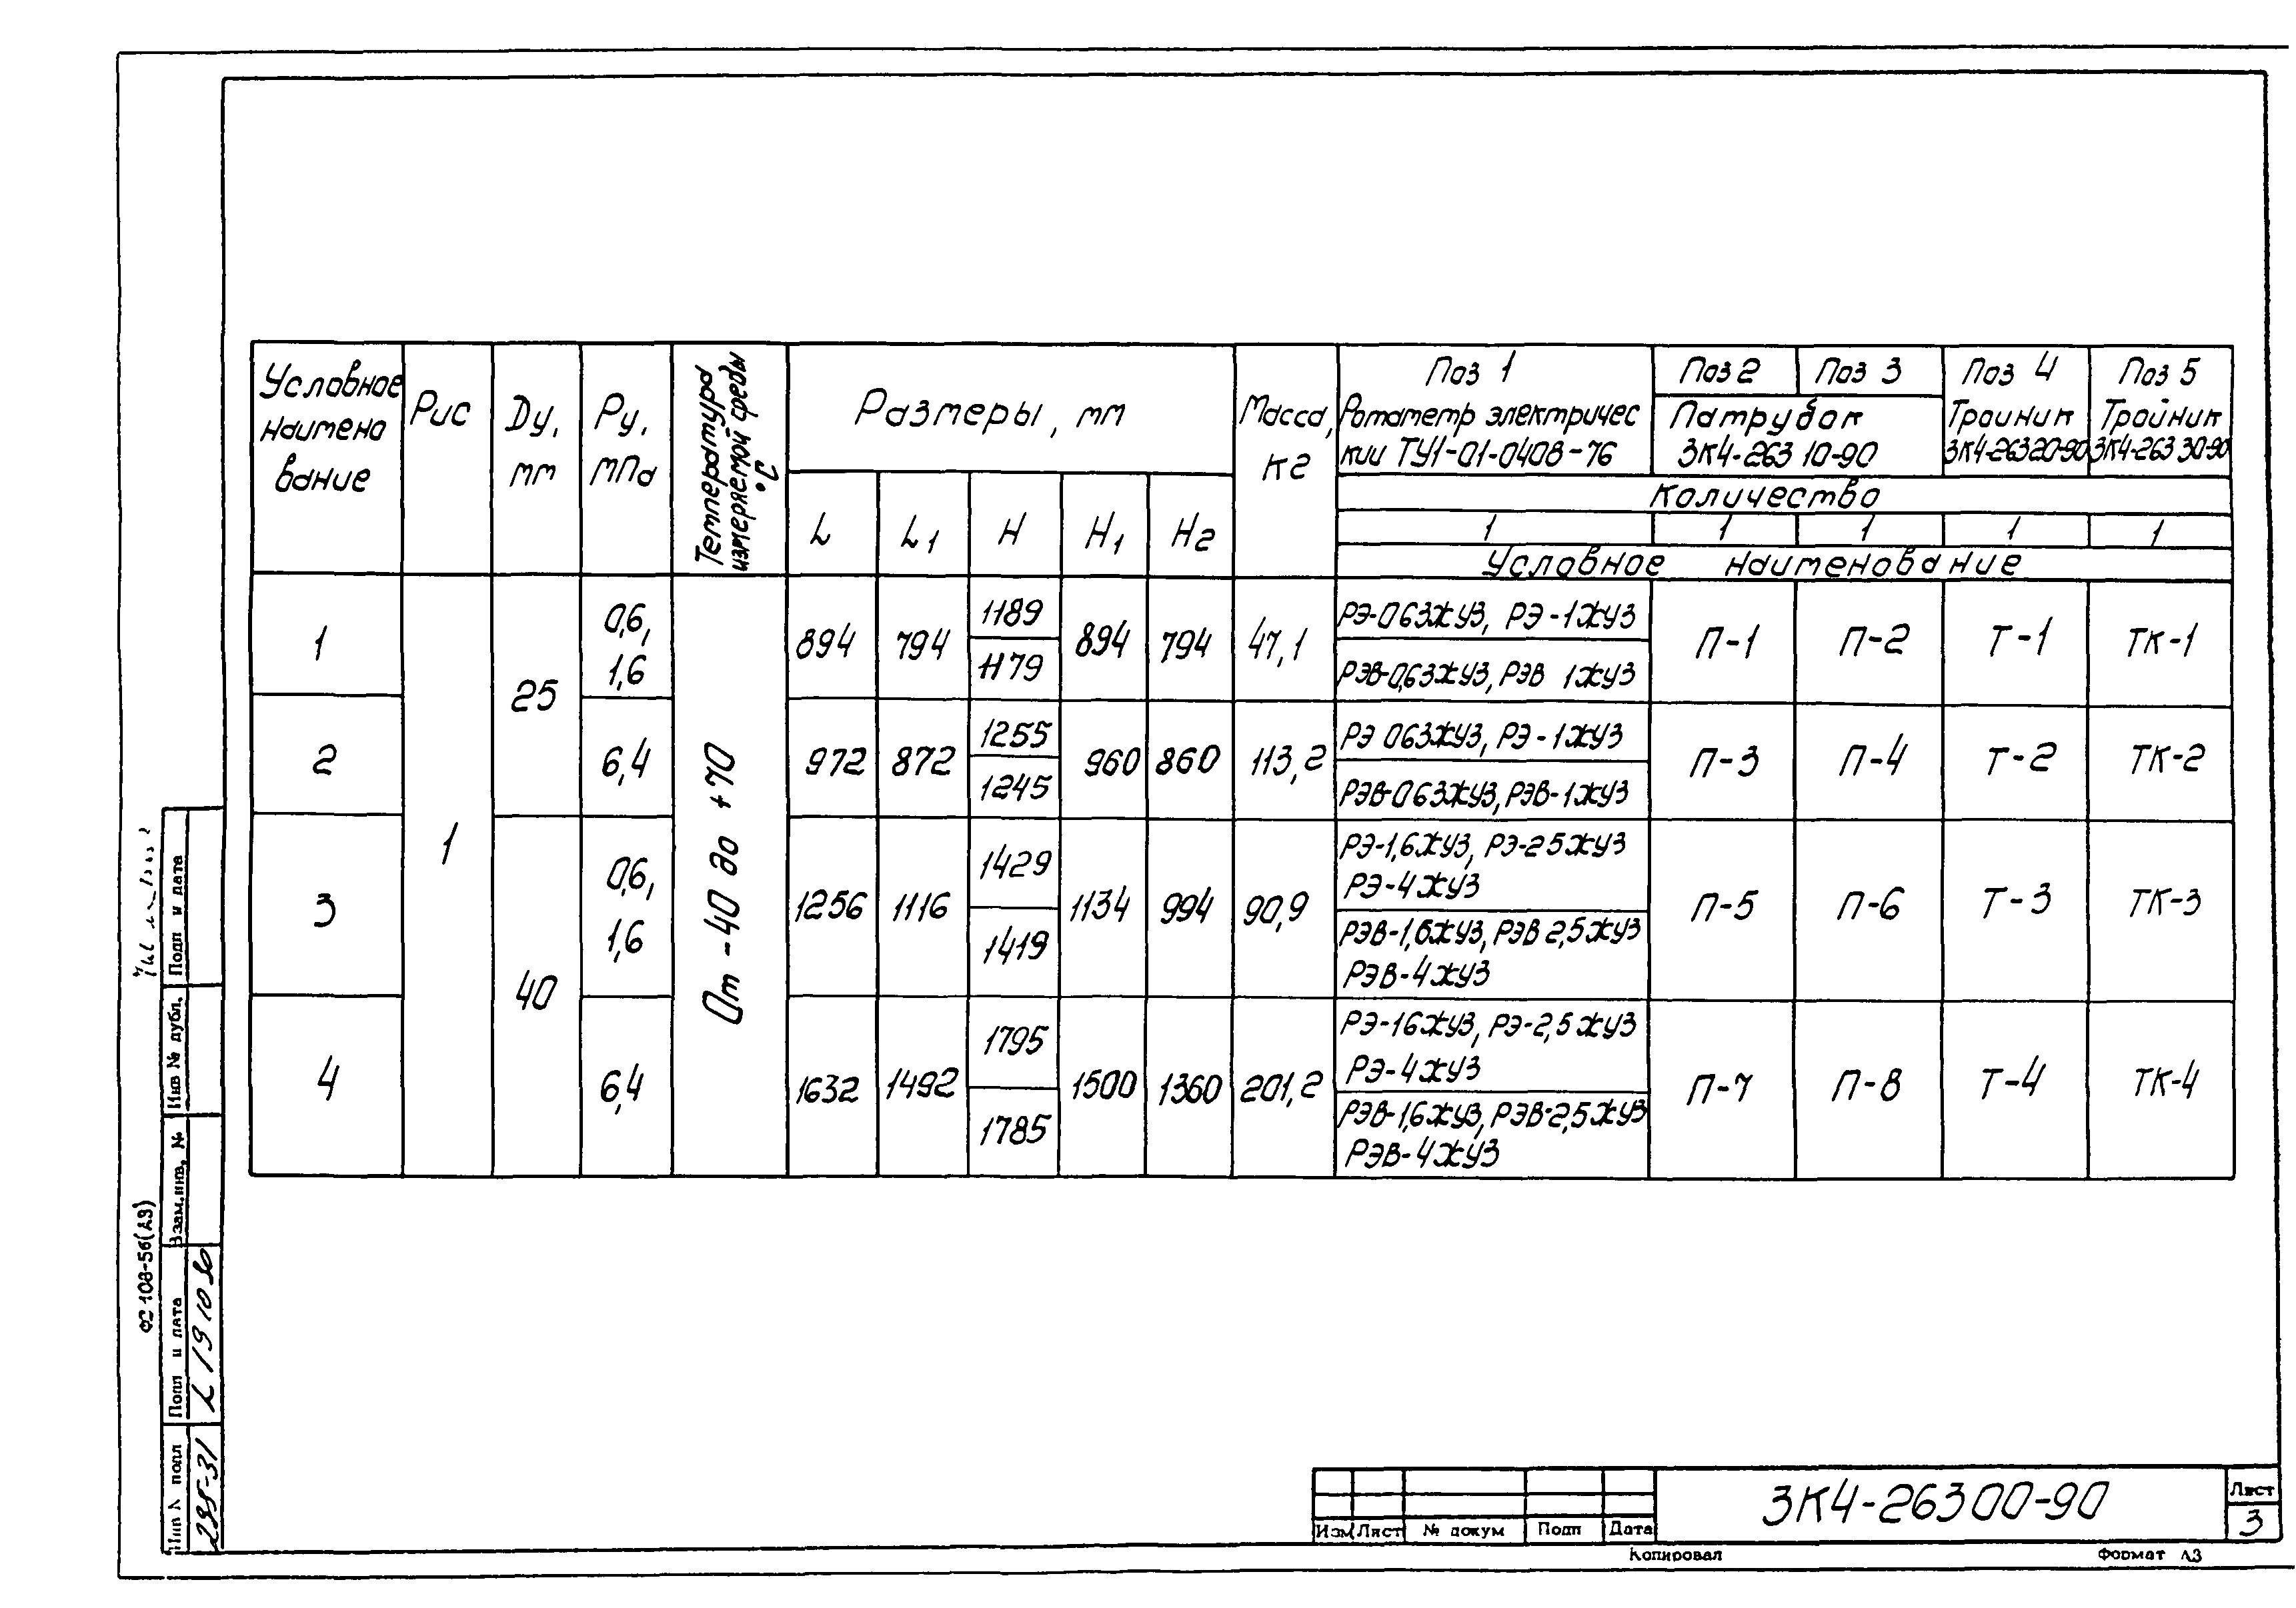 Условное наимено вание
Рис
Dу, мм
Ру, мПа
Температура измеряемой среды °С
Размеры, мм
L
L1
H
H1
H2
Масса, кг
Поз 1
Ротаметр электричес кии ТУ1-01-0408-76
Поз 2
Поз 3
Патрубок 3К4-263 10-90
Поз 4
Троиник 3К4-26320-90
Поз 5
Тройник 3К4-263 30-90
Количество
1 1 1 1 1
Условное наименование
1
1
25
0,6, 1,6
От -40 до +70
894 794
1189
1179
894 794 47,1
РЭ-063ЖУЗ, РЭ-1ЖУЗ
РЭВ-0,63ЖУЗ, РЭВ 1ЖУЗ
П-1 П-2 Т-1 ТК-1
2
6,4
972 872
1255
1245
960 860 113,2
РЭ 063ЖУЗ, РЭ-1ЖУЗ
РЭВ-063ЖУЗ, РЭВ-1ЖУЗ
П-3 П-4 Т-2 ТК-2
3
40
0,6, 1,6
1256 1116
1429
1419
1134 994 90,9
РЭ-1,6ЖУЗ, РЭ-25ЖУЗ
РЭ-4ЖУЗ
РЭВ-1,6ЖУЗ, РЭВ 2,5ЖУЗ
РЭВ-4ЖУЗ
П-5 П-6 Т-3 ТК-3
4
6,4
1632 1492
1795
1785
1500 1360 201,2
РЭ-16ЖУЗ, РЭ-2,5ЖУЗ
РЭ-4ЖУЗ
РЭВ-1,6ЖУЗ, РЭВ-2,5ЖУЗ
РЭВ-4ЖУЗ
П-7 П-8 Т-4 ТК-4
Подп и дата
Инв № дубл.
Взам.инв. №
Подп и дата
Инв № подл
295-31
Ф2 108-56(А3)
Изм Лист № докум Подп Дата
3К4-26300-90
Лист
3
Копировал
Формат А3